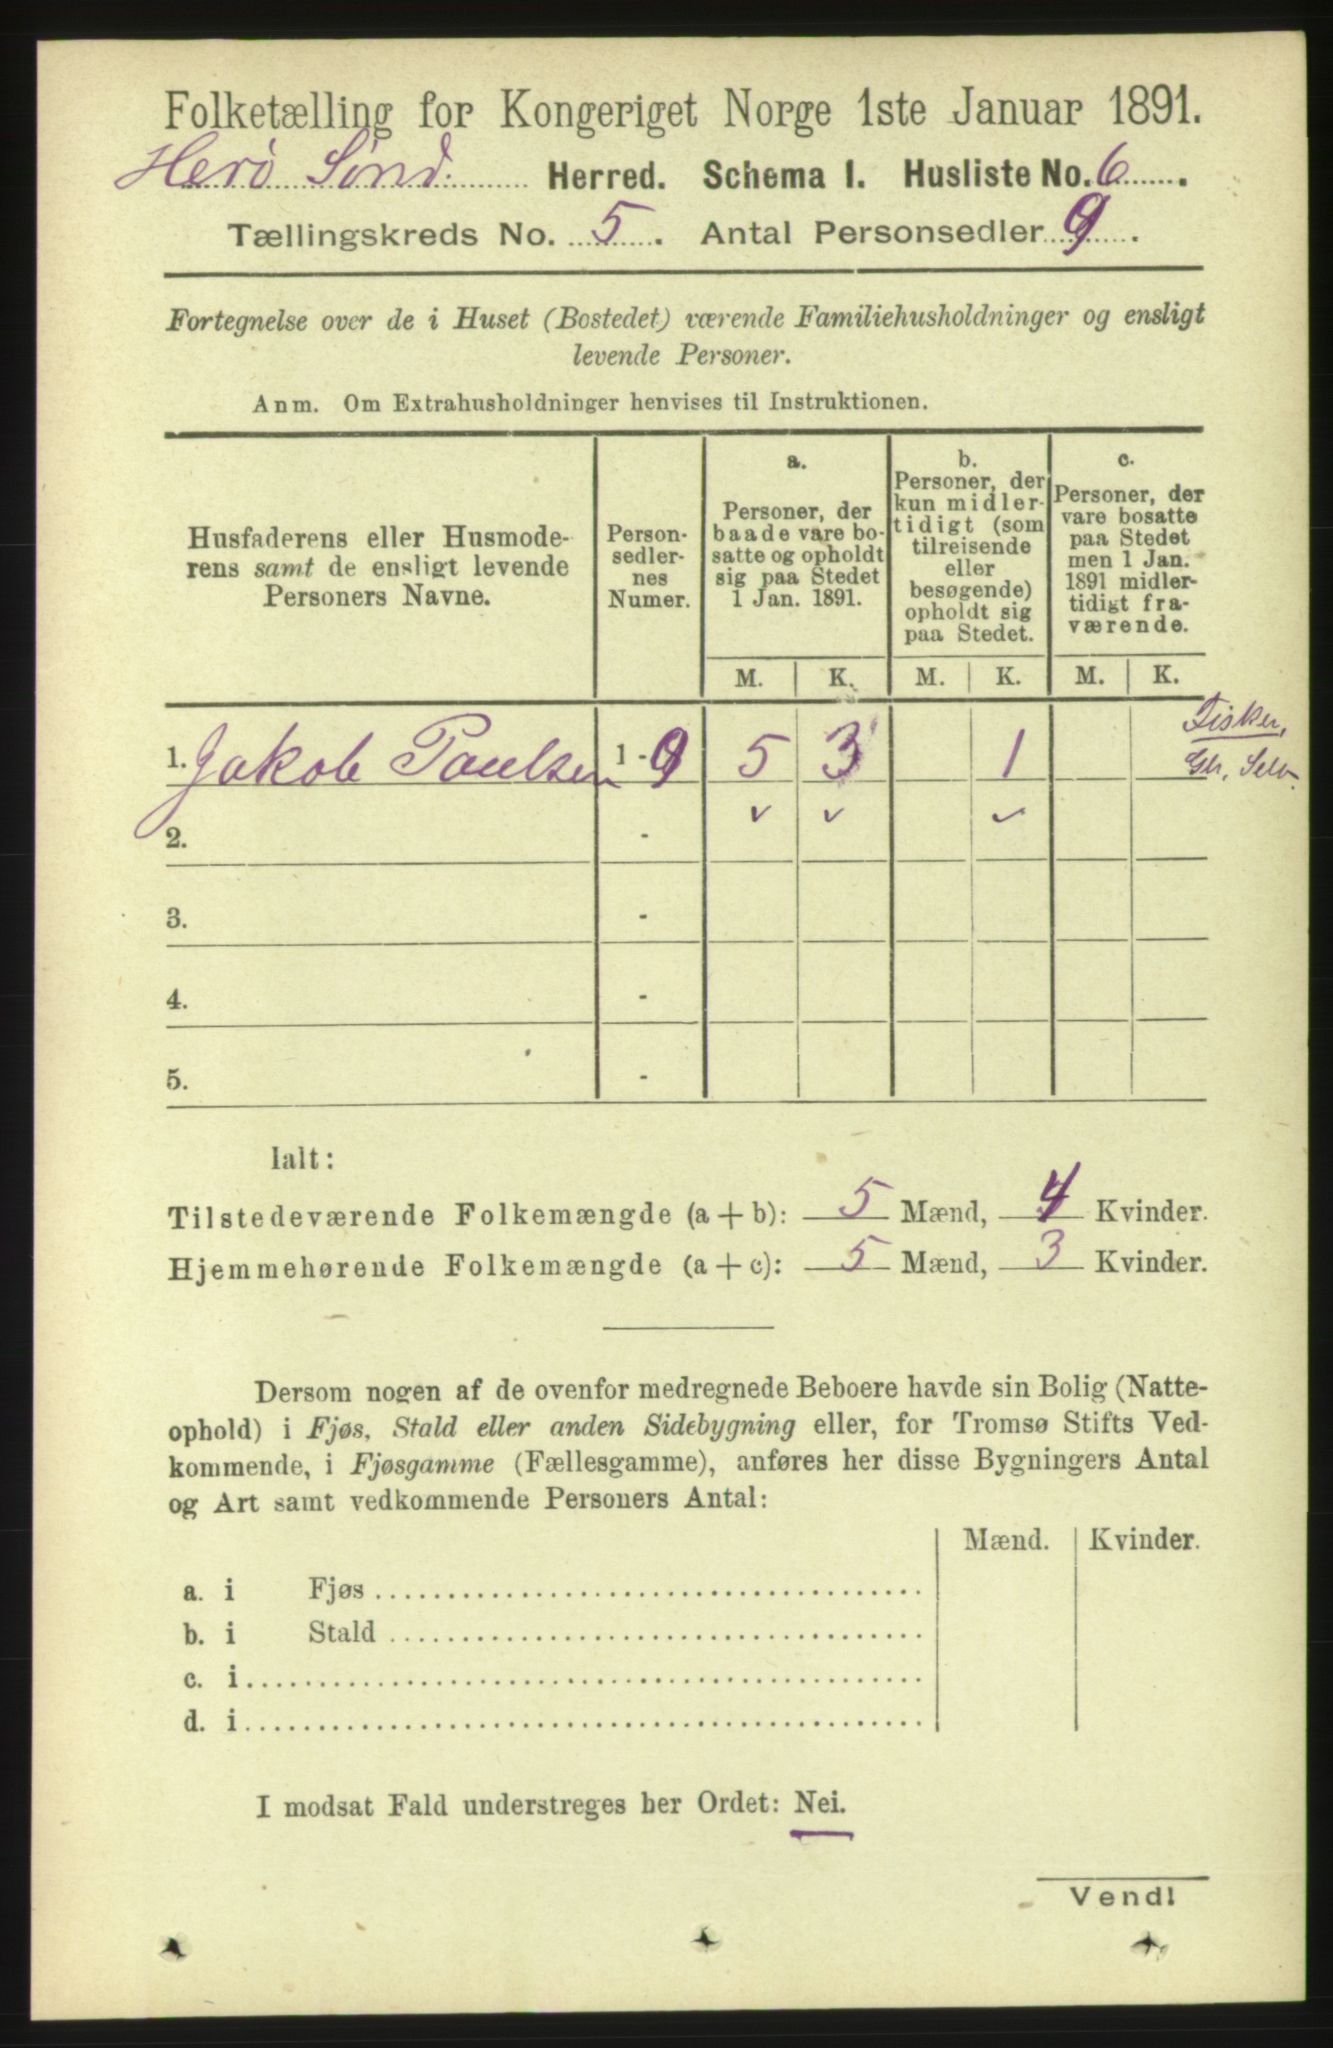 Folketælling for Kongeriget Norge 1ste Januar 1891.
Herø Sönd. Herred. Schema 1. Husliste No. 6.
Tællingskreds No. 5. Antal Personsedler 9.
Fortegnelse over de i Huset (Bostedet) værende Familiehusholdninger og ensligt
levende Personer.
Anm. Om Extrahusholdninger henvises til Instruktionen.
Husfaderens eller Husmode-
rens samt de ensligt levende
Personers Navne.
Person-
sedler-
nes
Numer.
a.
Personer, der
baade vare bo-
satte og opholdt
sig paa Stedet
1 Jan. 1891.
b.
Personer, der
kun midler-
tidigt (som
tilreisende
eller
besøgende)
opholdt sig
paa Stedet.
c.
Personer, der
vare bosatte
paa Stedet
men 1 Jan.
1891 midler-
tidigt fra-
værende.
M. K. M. K. M. K.
1. Jakob Paulsen 1 - 9 5 3 1 Fisker,
Gb, Selv.
✓ ✓ ✓
2. -
3. -
4. -
5. -
Ialt:
Tilstedeværende Folkemængde (a + b): 5 Mænd, 4 Kvinder.
Hjemmehørende Folkemængde (a + c): 5 Mænd, 3 Kvinder.
Dersom nogen af de ovenfor medregnede Beboere havde sin Bolig (Natte-
ophold) i Fjøs, Stald eller anden Sidebygning eller, for Tromsø Stifts Ved-
kommende, i Fjøsgamme (Fællesgamme), anføres her disse Bygningers Antal
og Art samt vedkommende Personers Antal:
Mænd. Kvinder.
a. i Fjøs
b. i Stald
c. i
d. i
I modsat Fald understreges her Ordet: Nei.
Vend!